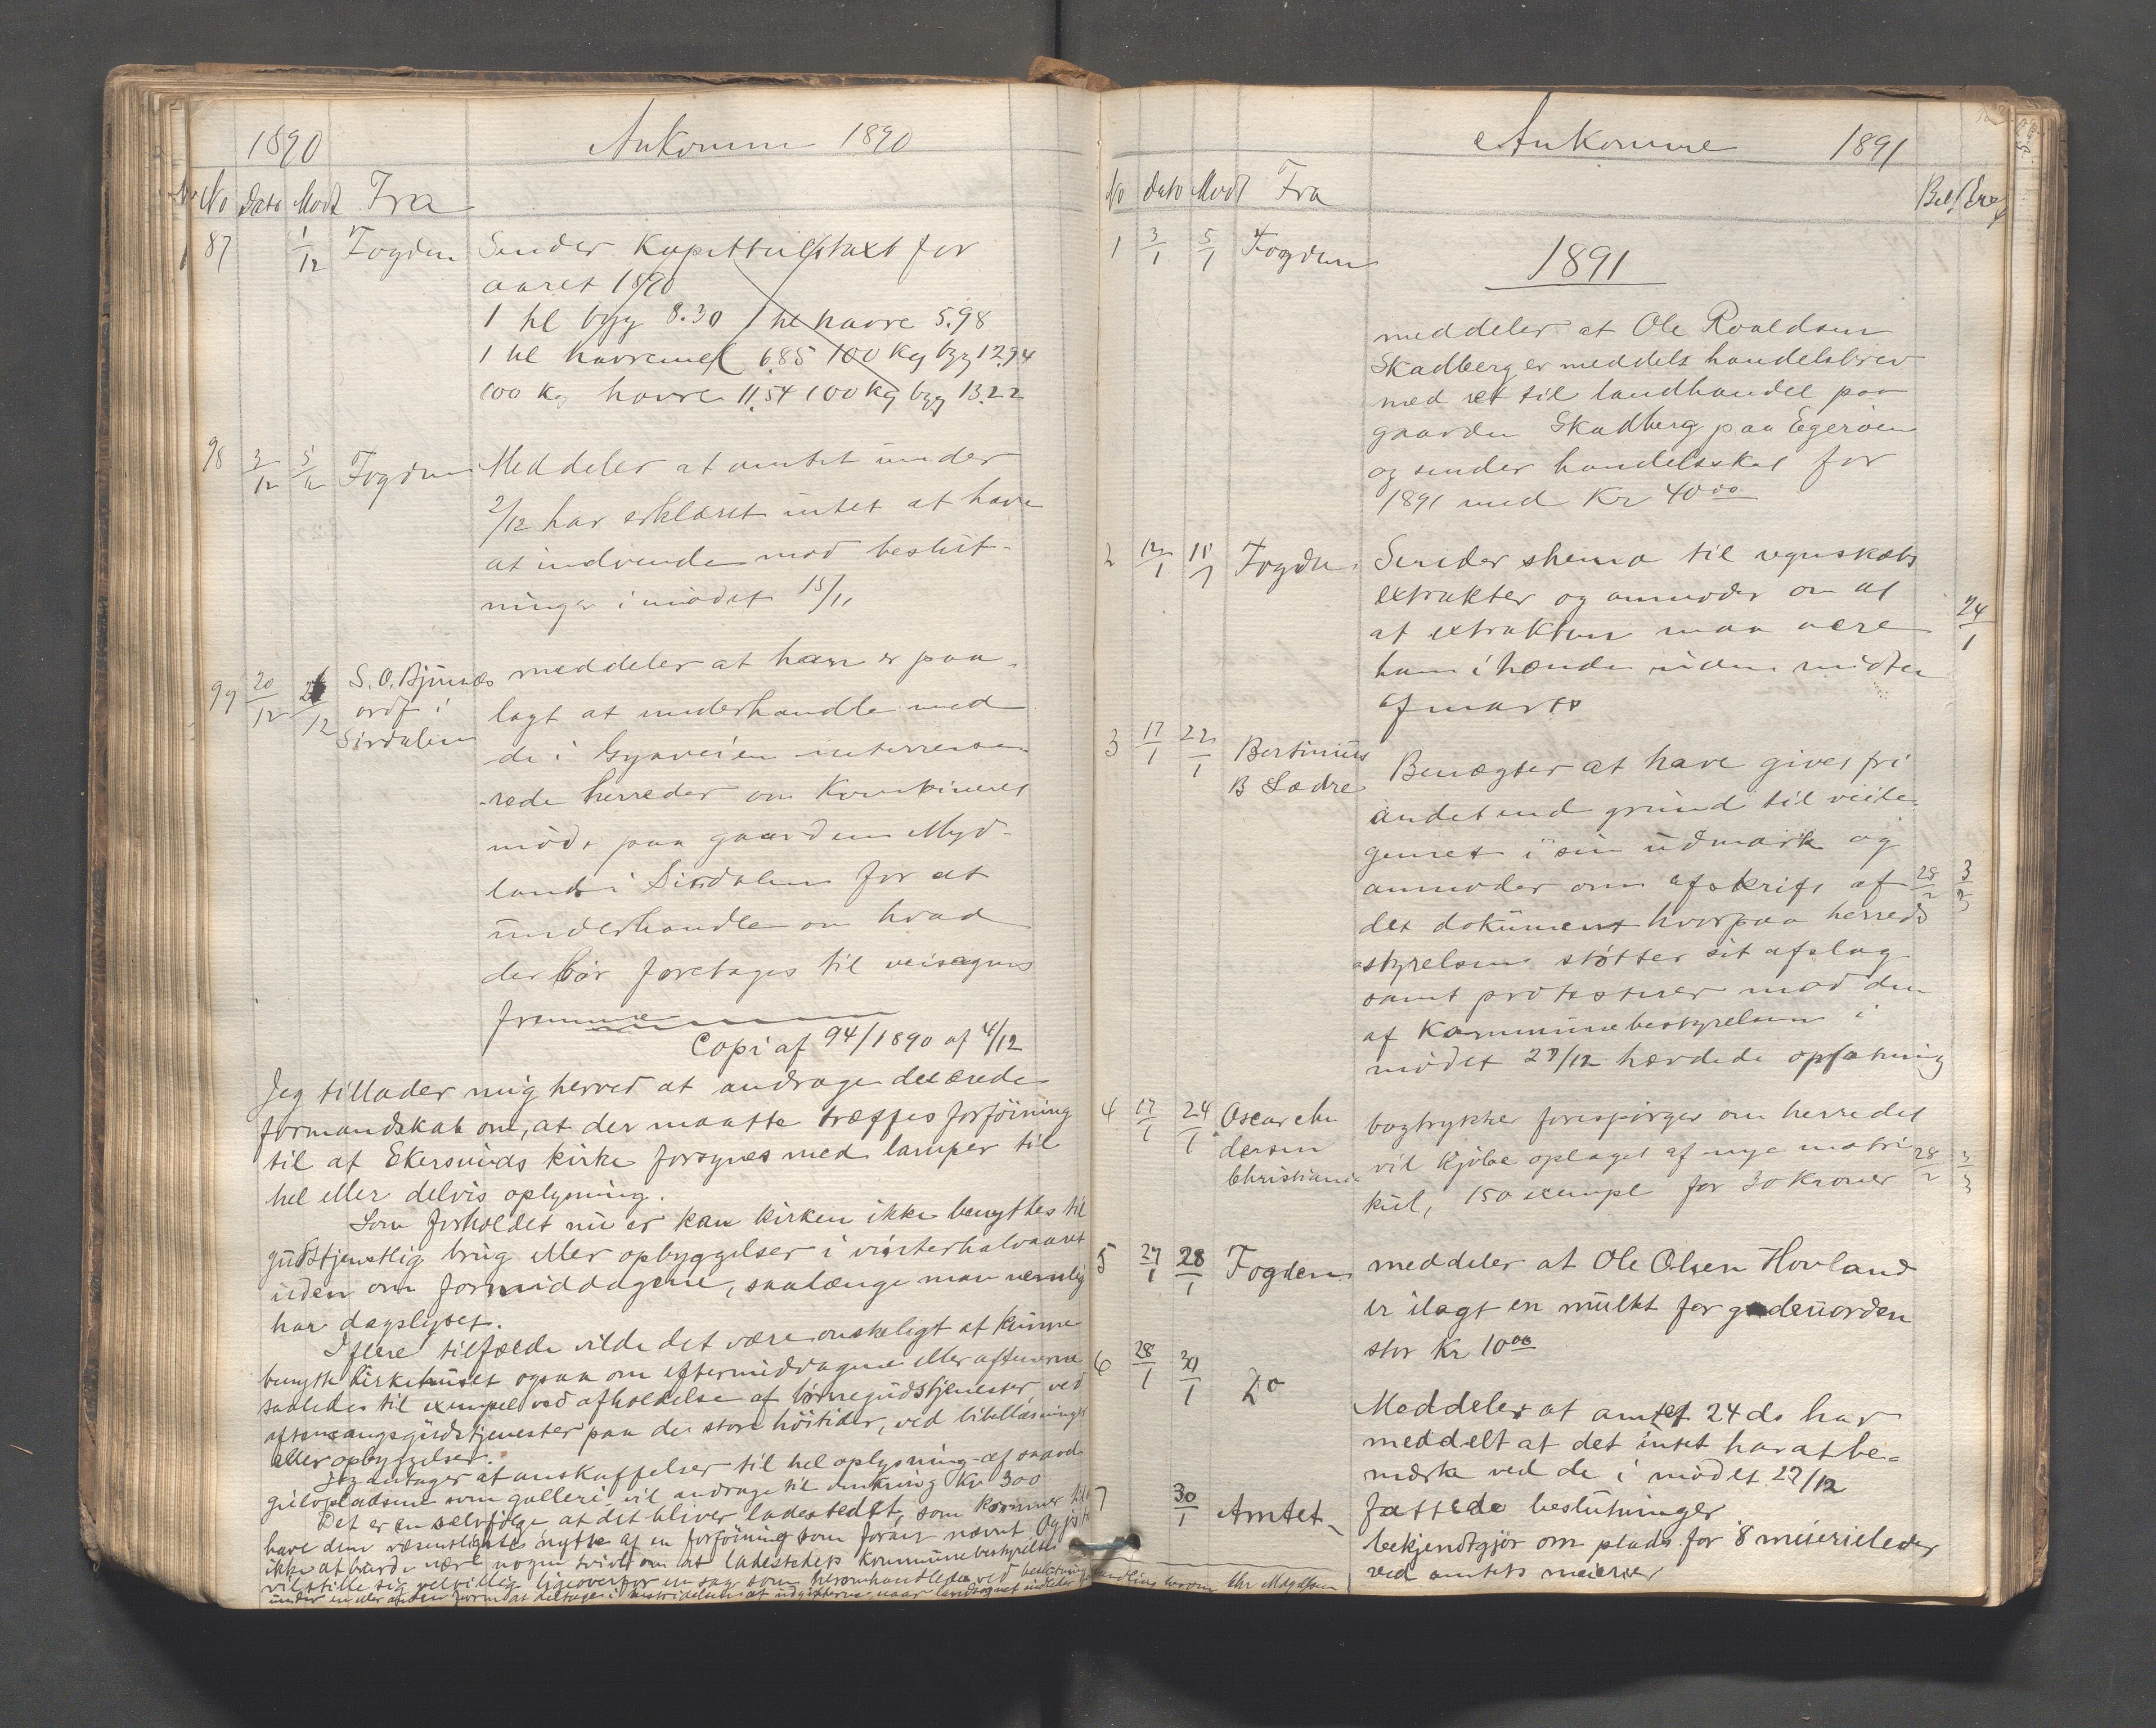 1890 Ankomne 1890
No Dato Modt Fra
97 1/12 Fogden Sender Kapittelstaxt for
aaret 1890
1 hl byg 8.30 1 hl havre 5.98
1 hl havremel 6.85 100 kg byg 12.94
100 kg havre 11.54 100 kg byg 13.22
98 3/12 5/12 Fogden Meddeler at amtet under
2/12 har erklæret intet at have
at indvende mod beslut-
ninger i mødet 15/11
99 20/12 26/12 S. O. Bjunæs meddeler at han er paa-
ordf i lagt at underhandle med
Sirdalen de i Gyaveien interresse-
rede herreder om Kombineret
møde paa gaarden Myd-
land i Sirdalen for at
underhandle om hvad
der bør foretages til veisagens
fremme
Copi af 94/1890 af 4/12
Jeg tillader mig herved at andrage det ærede
formandskab om, at der maatte træffes forföining
til at Ekersunds kirke forsynes med lamper til
hel eller delvis oplysning.
Som forholdet nu er kan kirken ikke benyttes til
gudstjenstlig brug eller opbyggelser i vinterhalvaaret
uden om formiddagene, saalænge man nemlig
har dagslyset.
I flere tilfælde vilde det være ønskeligt at kunne
benytte kirkehuset ogsaa om eftermiddagene eller aftenerne
saaledes til exempel ved afholdelse af börnegudstjenester, ved
aftensangsgudstjenester paa de store höitider, ved bibellæsninger
eller opbyggelser.
Jeg antager at anskaffelser til hel oplysning af saavel
gulvpladsen som galleri vil andrage til omkring Kr 300
Det er en selvfølge at det bliver ladestedet, som kommer til at
have den væsentligste nytte af en forföining som foran nævnt. Og jeg
ikke at burde være nogen tvivl om at ladestedets Kommunebestyrelse
vil stille sig velvillig ligeoverfor en sag som heromhandlede ved beslutning
under en eller anden form at deltage i bestridelsen af udgifterne, naar landsognet indleder
Ankomne 1891
No Dato Modt Fra Bes. Exp
1 3/1 5/1 Fogden 1891
meddeler at Ole Roaldsen
Skadberg er meddelt handelsbrev
med ret til landhandel paa
gaarden Skadberg paa Egerøen
og sender handelsskat for
1891 med Kr 40 00
2 12/1 15/1 Fogden Sender shema til regnskabs
extrakter og anmoder om at
at extrakten maa være 24/1
ham ihænde inden midten
af marts
3 17/1 22/1 Bertinius Benægter at have givet fri
B Sædre andet end grund til veite-
gemet i sin udmark og
anmoder om afskrift af 28/2 3/3
det dokument hvorpaa herreds
styrelsen støtter sit afslag
samt protesterer mod den
af Kommunebestyrelsen i
mødet 29/12 hævdede opfatning
4 17/1 24/1 Oscar An bogtrykker forespörges om herredet
dersen vil kjöbe oplaget af nye matri 28/2 3/3
Christiania kul, 150 exempl for 30 Kroner
5 27/1 28/1 Fogden meddeler at Ole Olsen Hovland
er ilagt en mulkt for gadeuorden
stor Kr 10 00
6 28/1 30/1 Do Meddeler at amtet 24 ds har
meddelt at det intet har at be-
mærke ved de i mödet 29/12
fattede beslutninger
7 30/1 Amtet bekjendtgjör om plads for 8 meierielever
ved amtets meierier
handling herom Chr Magdtsen